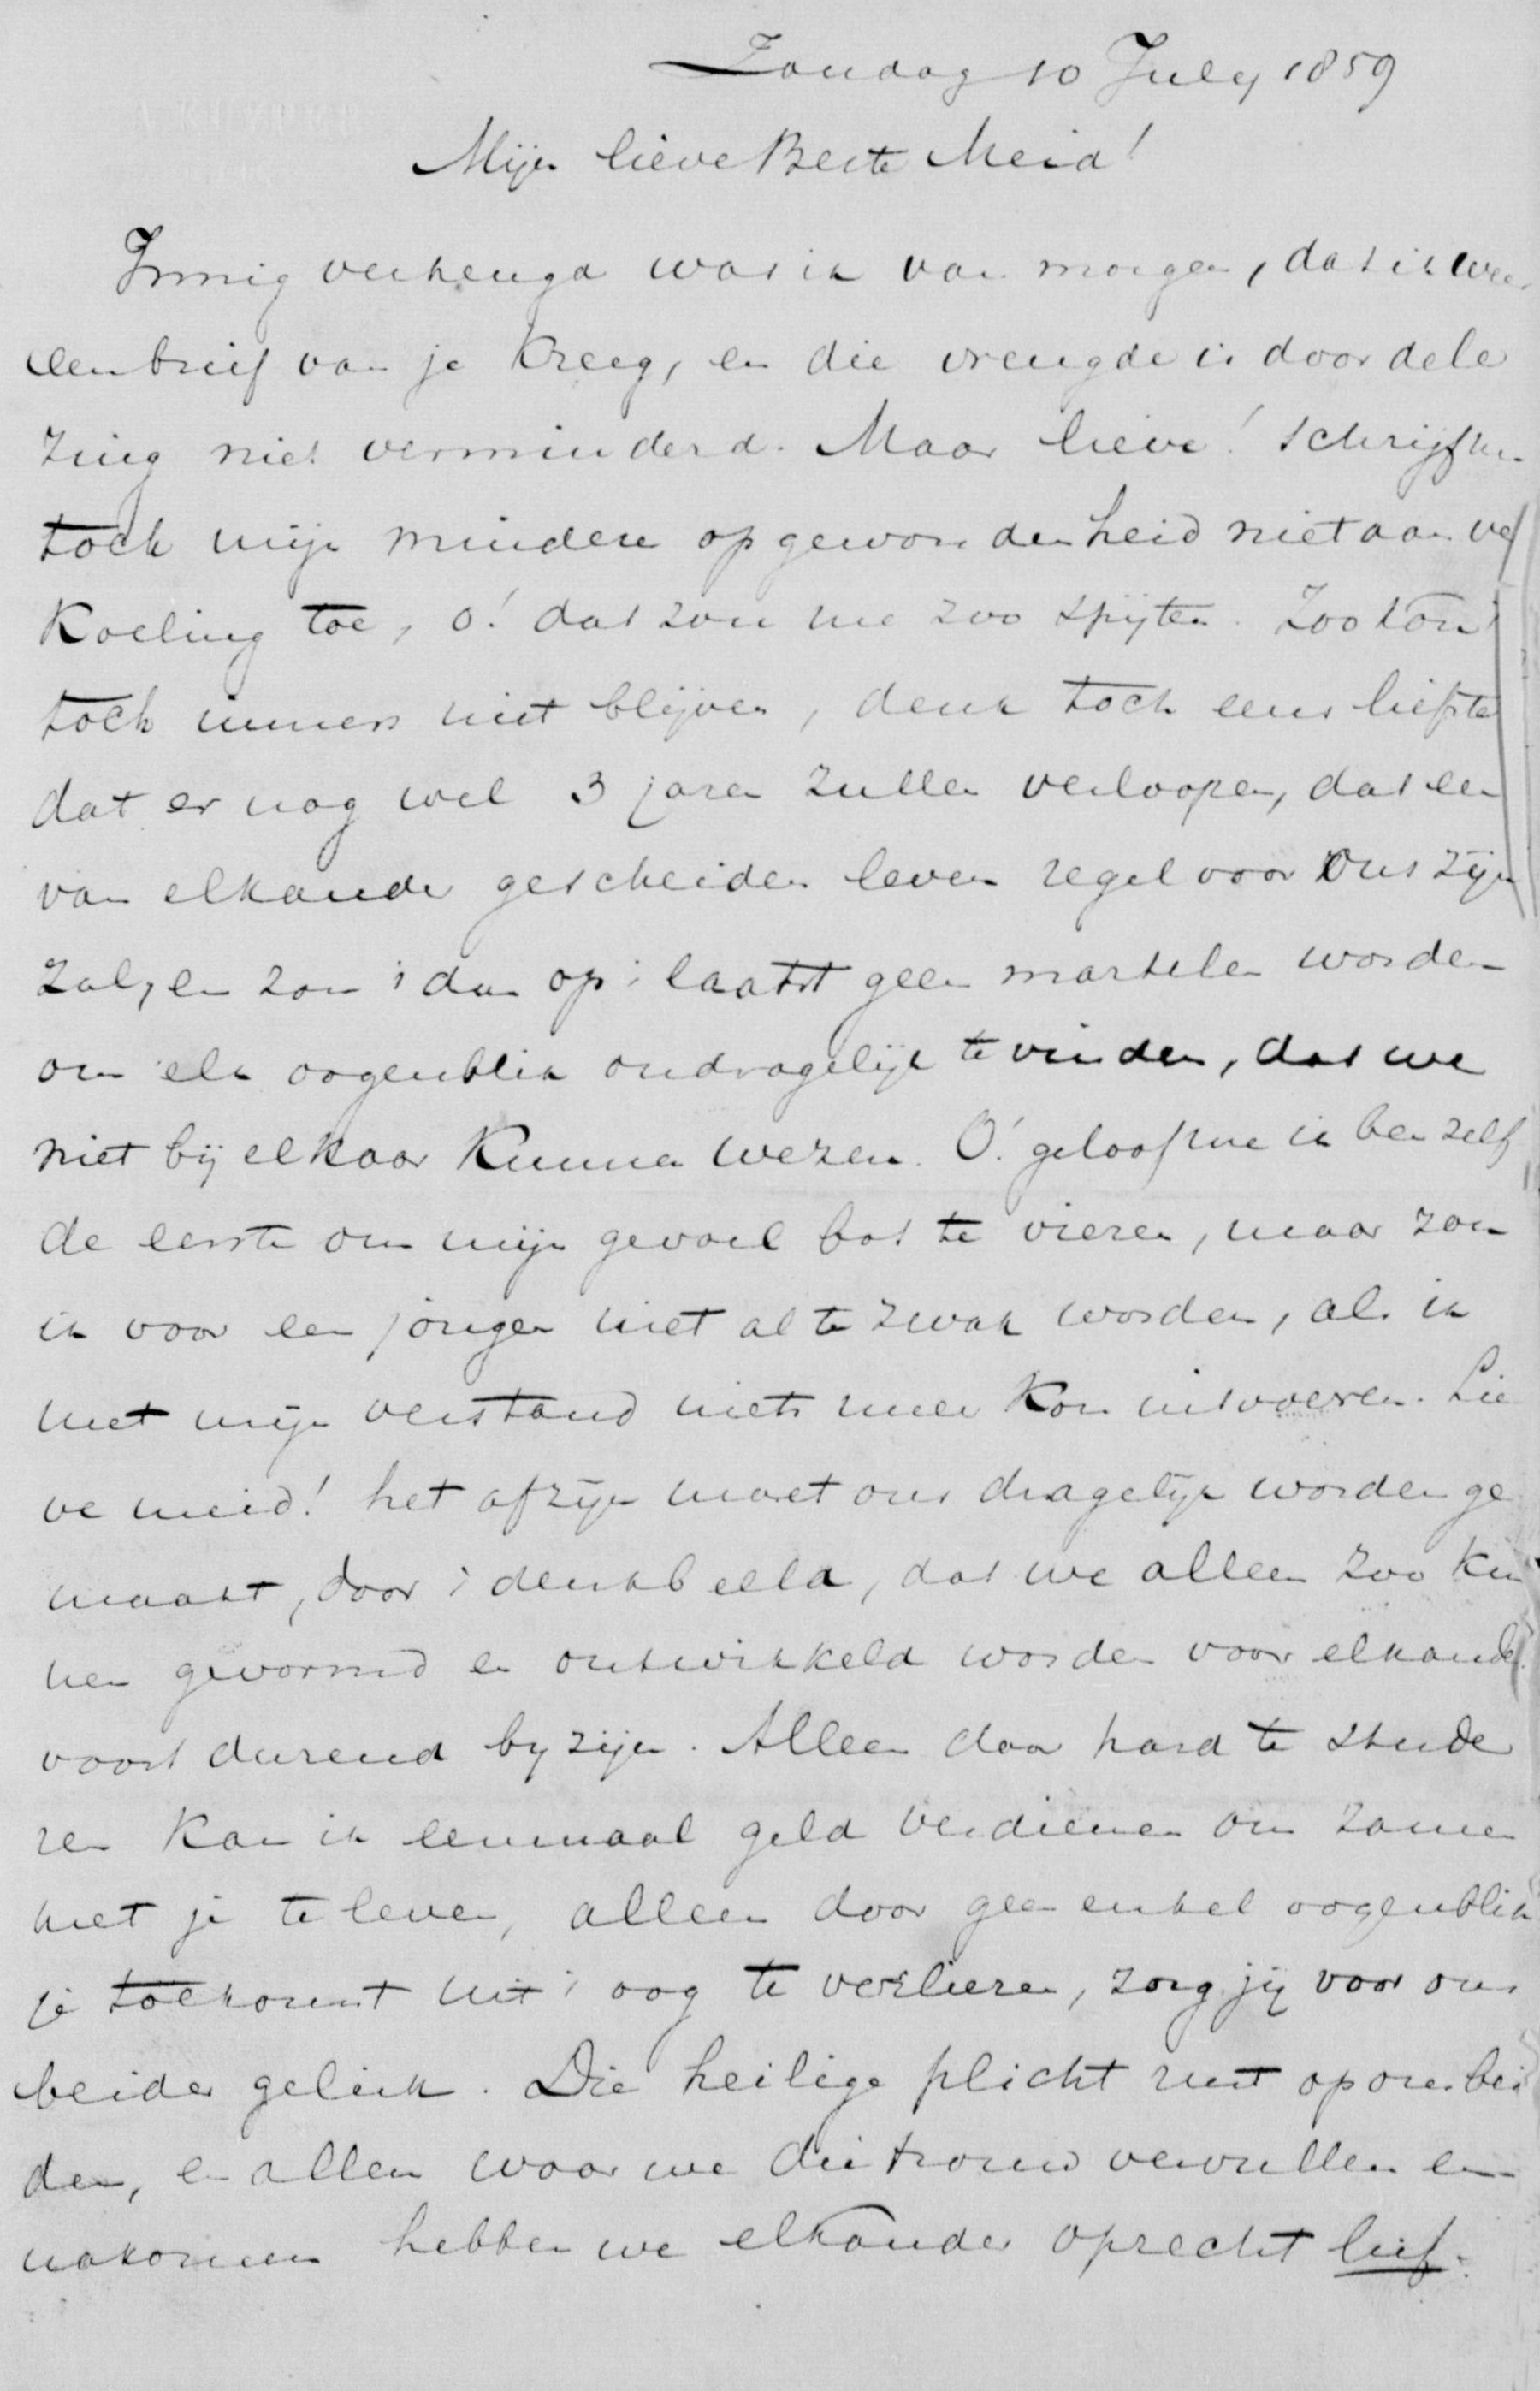 Zondag 10 July 1859
Mijn lieve Beste Meid!
Innig verheugd was ik van morgen, dat ik weer
een brief van je kreeg, en die vreugde is door de le
zing niet verminderd. Maar lieve! schrijf me
toch mijn mindere opgewondenheid niet aan ver
koeling toe, o! dat zou me zoo spijten. Zoo kon 't
toch immers niet blijven, denk toch eens liefste
dat er nog wel 3 jaren zullen verloopen, dat een
van elkander gescheiden leven regel voor ons zijn
zal, en zou 't dan op 't laatst geen martelen worden
om elk oogenblik ondragelijk te vinden, dat we
niet bij elkaar kunnen wezen. O! geloof me ik ben zelf
de eerste om mijn gevoel bot te vieren, maar zou
ik voor een jongen niet al te zwak worden, als ik
met mijn verstand niets meer kon uitvoeren. Lie
ve meid! het afzijn moet ons dragelijk worden ge
maakt, door 't denkbeeld, dat we alleen zoo kun
nen gevormd en ontwikkeld worden voor elkanders
voortdurend byzijn. Alleen door hard te stude
ren kan ik eenmaal geld verdienen om zamen
met je te leven, alleen door geen enkel oogenblik
je toekomst uit 't oog te verliezen, zorg jij voor ons
beider geluk. Die heilige plicht rust op ons bei
den, en alleen waar we die trouw vervullen en
nakomen hebben we elkander oprecht lief.